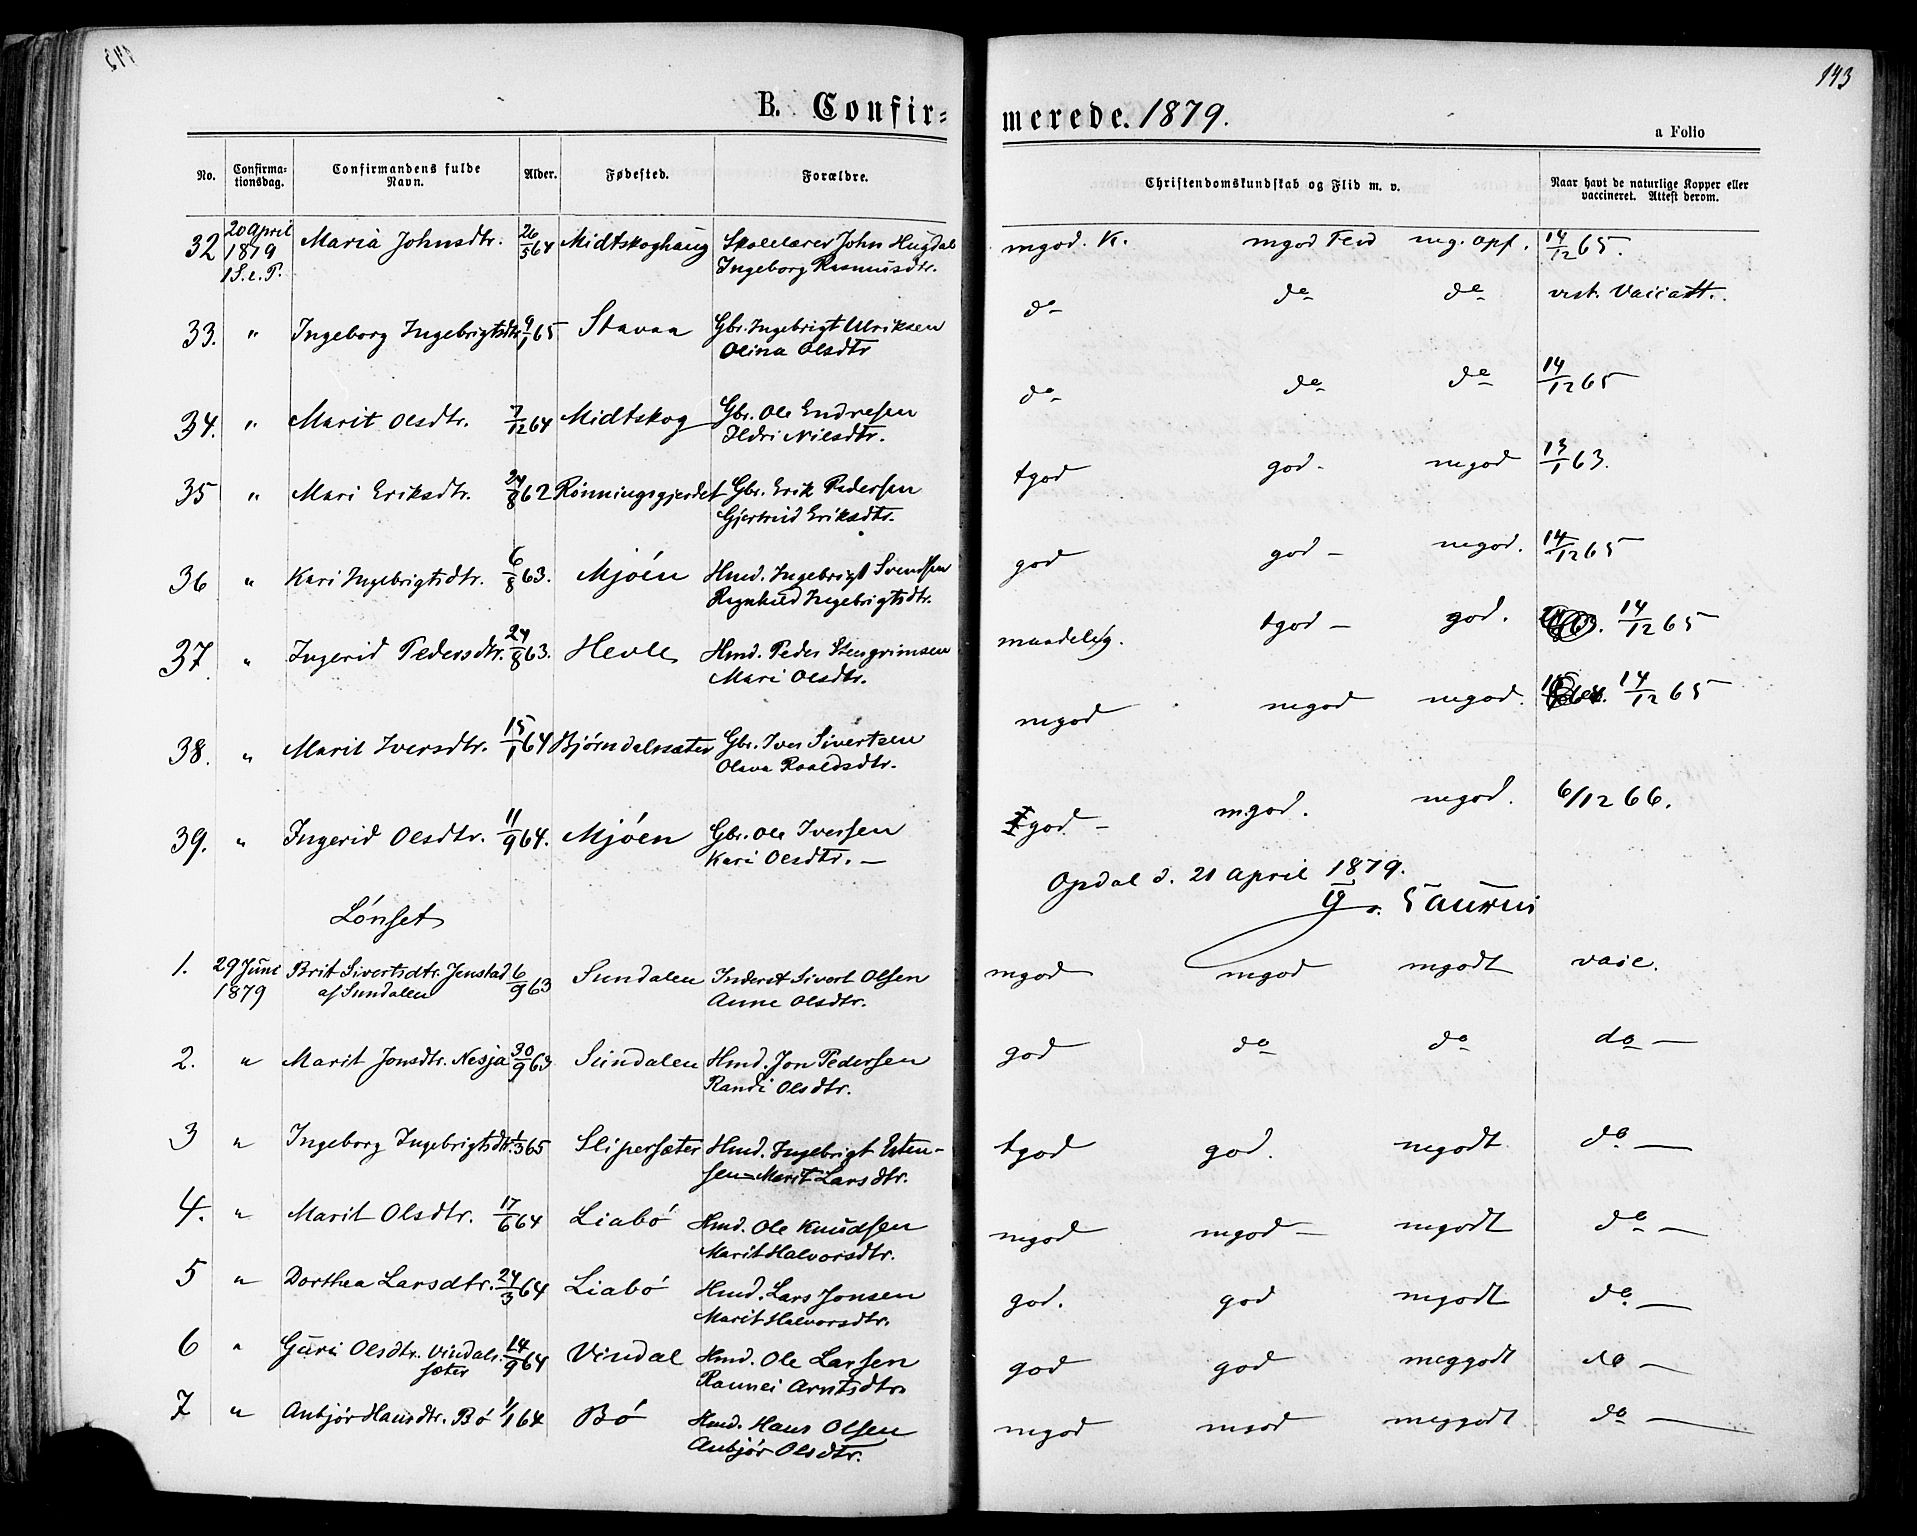 143
B. Confirmerede. 1879.
a Folio
No. Confirmationsdag. Confirmandens fulde Navn. Alder. Fødested. Forældre. Christendomskundskab og Flid m. v. Naar havt de naturlige Kopper eller vaccineret. Attest derom.
32 20 April 1879 1 S. e. P. Maria Johnsdtr. 26/5 64 Midtskoghaug Skolelærer John Hugdal mgod. K. mgod Flid mg. Opf. 14/12 65.
Ingeborg Rasmusdtr.
33. " Ingeborg Ingebrigtsdtr 9/1 65 Stavaa Gbr. Ingebrigt Ulriksen do do do vist. Vacc att.
Olina Olsdtr
34. " Marit Olsdtr. 7/12 64 Midtskog Gbr. Ole Endresen do do do 14/12 65
Ildri Nilsdtr.
35 " Mari Eriksdtr. 24/8 62 Rønningsgjerdet Gbr. Erik Pedersen tgod god- mgod 13/1 63.
Gjertrud Eriksdtr.
36 " Kari Ingebrigtsdtr. 6/8 63. Mjóen Hmd. Ingebrigt Svendsen god god- mgod. 14/12 65
Ragnhild Ingebrigtsdtr.
37 " Ingerid Pedersdtr. 24/8 63. Hevle Hmd. Peder Stengrimsen maadelig. tgod- god. 14/12 65
Mari Olsdtr.
38. " Marit Iversdtr. 15/1 64 Bjørndalssæter Gbr. Iver Sivertsen mgod mgod mgod. 14/12 65
Olava Roaldsdtr.
39. " Ingerid Olsdtr. 11/9 64. Mjóen Gbr. Ole Iversen tgod- mgod. mgod. 6/12 66.
Kari Olsdtr. -
Opdal d. 21 April 1879.
Lónset
1. 29 Juni 1879 Brit Sivertsdtr. Jenstad af Sundalen 6/9 63 Sundalen Inderst Sivert Olsen mgod mgod mgodt vacc.
Anne Olsdtr.
2. " Marit Jonsdtr. Nesja 30/9 63 Sundalen Hmd. Jon Pedersen god do do do -
Randi Olsdtr.
3 " Ingeborg Ingebrigtsdtr. 1/3 65 Slipersæter Hmd. Ingebrigt Esten- tgod god. megodt do -
sen - Marit Larsdtr.
4. " Marit Olsdtr. 17/6 64 Liabó Hmd. Ole Knudsen mgod mgod- mgodt do -
Marit Halvorsdtr.
5 " Dorthea Larsdtr. 24/3 64 Liabó Hmd. Lars Jonsen god. god mgodt do. -
Marit Halvorsdtr.
6 " Guri Olsdtr. Vindalssæter 14/9 64 Vindal Hmd. Ole Larsen god god meggodt do -
Rannei Arntsdtr
7 " Anbjór Hansdtr. Bó 1/1 64 Bó Hmd. Hans Olsen mgod mgod meggodt do -
Anbjór Olsdtr.